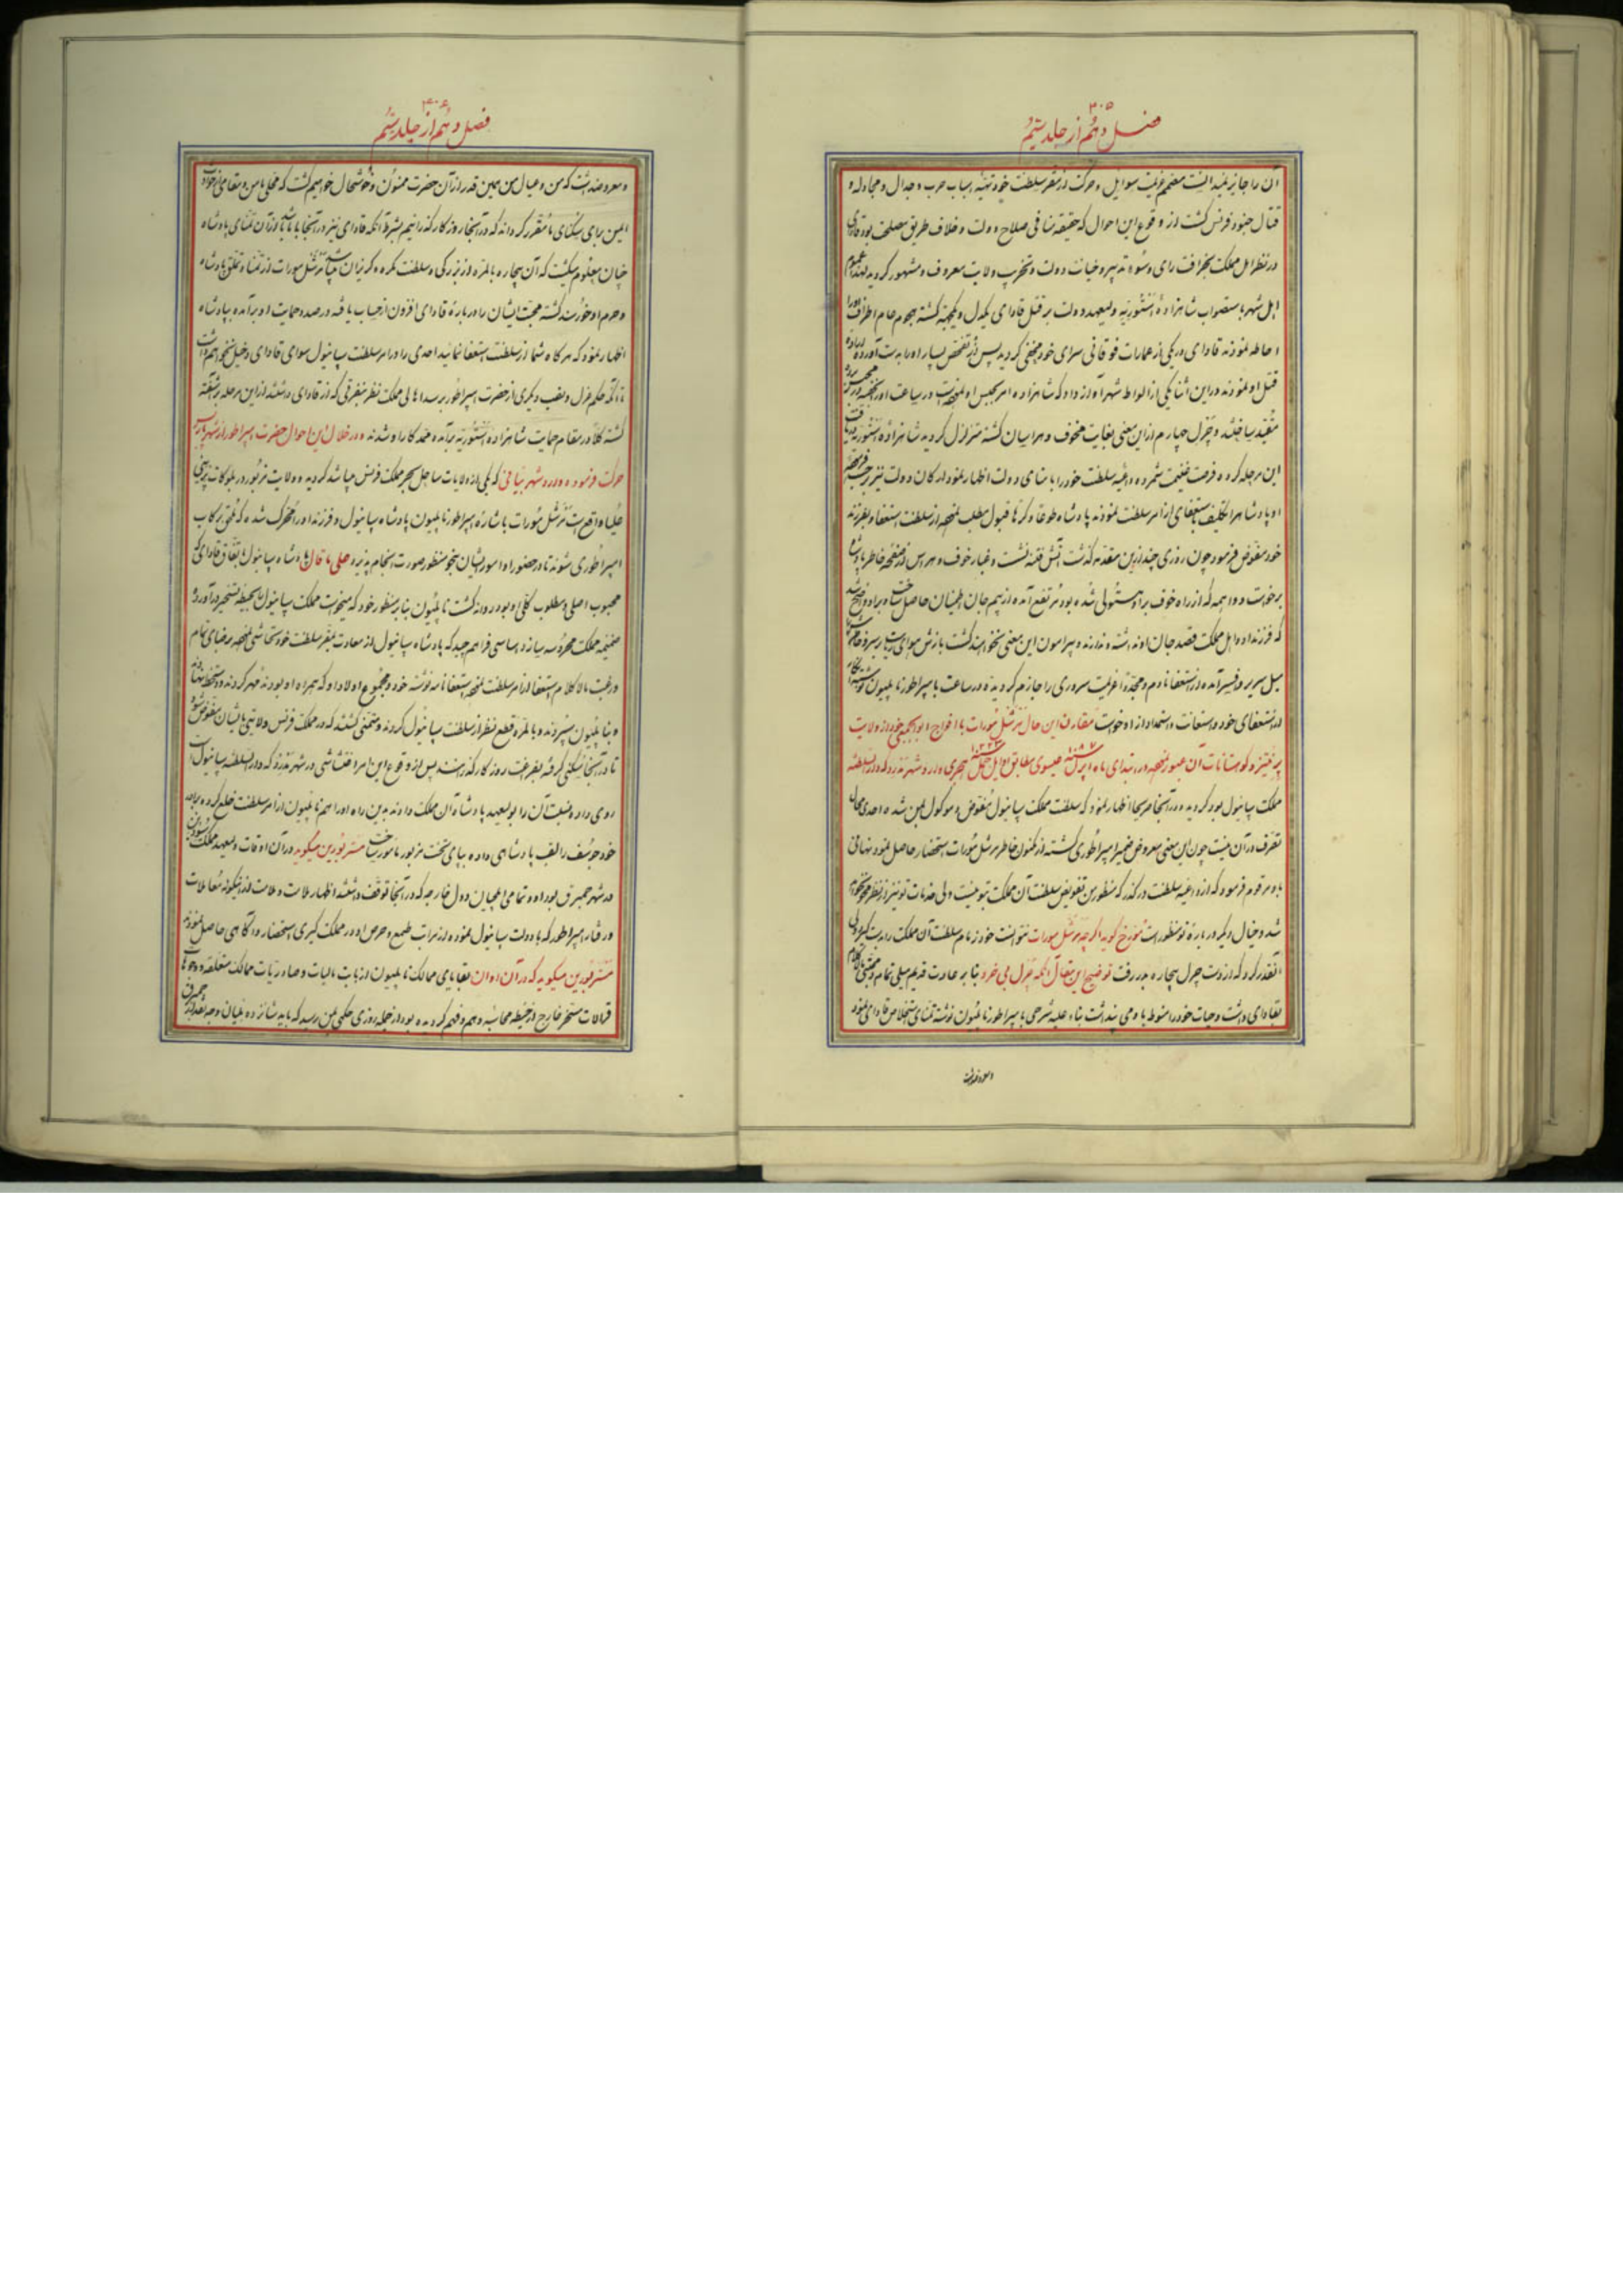 ۳۰۵
فصل دهم از جلد ششم
آن را جایز ندانست مصمم عزیمت سوایل و حرکت از مقر سلطنت خود تهیه اسباب حرب و جدال و مجادله و
قتال جنود فرنس گشت از وقوع این احوال که حقیقة منافی صلاح دولت و خلاف طریق مصلحت بود قادای
در نظر اهل مملکت بخرافت رای و سوء تدبیر و خیانت دولت و تخریب ولایت معروف و مشهور گردیده عموم
اهل شهر باستصواب شاهزاده استوریه ولیعهد دولت بر قتل قادای یکدل و یکجهة گشته بهجوم عام اطراف او را
احاطه نمودند قادای در یکی از عمارات فوقانی سرای خود مخفی گردید پس از تفحص بسیار او را بدست آورده اراده
قتل او نمودند در این اثنا یکی از الواط شهر آواز داد که شاهزاده امر بحبس او در ساعت او را
مقید ساختند و چرل چهارم از این معنی بغایت مخوف و هراسان گشته متزلزل گردید شاهزاده استوریه
این مرحله کرده فرصت غنیمت شمرده داعیه سلطنت خود را با امنای دولت اظهار نمود ارکان دولت نیز
او پادشاه را تکلیف باستعفای از امر سلطنت نمودند پادشاه طوعا و کرها قبول مطلب از سلطنت استعفا و بفرزند
خود مفوض فرمود چون روزی چند از این مقدمه گذشت آتش فتنه نشست و غبار خوف و هراس از صفحه خاطر پادشاه
برخواست و واهمه که از راه خوف بر او مستولی شده بود مرتفع آمده از بیم جان اطمینان حاصل ساخت
که فرزند او و اهل مملکت قصد جان او نداشته و ندارند و پیرامون این معنی نخواهند گشت بازش هوای
میل سریر و افسر آمده از استعفا نادم و مجددا عزیمت سروری را جازم گردیده در ساعت بامپراطور ناپلیون
از استعفای خود و استعانت و استمداد از او خواست مقارن این حال مرشل مورات با افواج ابوابجمعی خود از ولایت
پرنیز و کوهستانات آن عبور در ابتدای ماه اپرل عیسوی مطابق اوایل حمل هجری وارد شهر مدرد که دار السلطنه
مملکت سپانیول بود گردیده در آنجا صریحا اظهار نمود که سلطنت مملکت سپانیول مفوض و موکول بمن شده احدی مجال
تصرف در آن نیست چون این معنی معروض ضمیر امپراطوری گشته از مکنون خاطر مرشل مورات استحضار حاصل نمود نهانی
باو مرقوم فرمود که از داعیه سلطنت درگذر که منظور من تفویض سلطنت آن مملکت بتو نیست ولی خدمات تو نیز از نظر محو نخواهد
شد و خیال دیگر در باره تو منظور است مورخ گوید اگر چه مرشل مورات نتوانست خود زمام سلطنت آن مملکت را بدست
آنقدر کرد که از دست چرل بیچاره بدر رفت توضیح این مقال آنکه چرل بی خرد بنا بر عادت قدیم میلی تمام و
بقادای داشت و حیات خود را منوط باو می پنداشت بناء علیه شرحی بامپراطور ناپلیون نوشته تمنای استخلاص قادای نمود
و معروضداشت
۳۰۶
فصل دهم از جلد ششم
و معروضداشت که من و عیال من بهمین قدر از آن حضرت ممنون و خوشحال خواهیم گشت که محلی مأمن و مقامی
ایمن برای سکنای ما مقرر گرداند که در آنجا روزگار گذرانیم بشرط آنکه قادای نیز در آنجا با ما باشد از آن تمنای پادشاه
چنان معلوم میگشت که آن بیچاره بالمره از بزرگی و سلطنت مکره و گریزان مرشل مورات از تمنا و تملق پادشاه
و حرم او خورسند گشته محبت ایشان را در باره قادای افزون از حساب یافته در صدد حمایت او برآمده بپادشاه
اظهار نمود که هر گاه شما از سلطنت استعفا نمائید احدی را در امر سلطنت سپانیول سوای قادای دخیل نخواهیم
تا آنکه حکم عزل و نصب دیگری از حضرت امپراطور برسد اهالی مملکت نظر بتنفرقی که از قادای داشتند از این مرحله برآشفته
گشته کلا در مقام حمایت شاهزاده استوریه برآمده ضد کار او شدند و در خلال این احوال حضرت امپراطور از شهر پاریس
حرکت فرموده وارد شهر بیانی که یکی از ولایات ساحل بحر مملکت فرنس میباشد گردید و ولایت مزبور در
علیا واقع است مرشل مورات باشاره امپراطور ناپلیون پادشاه سپانیول و فرزند او را محرک شده که ملتجی برکاب
امپراطوری شوند تا در حضور او امور ایشان بنحو منظور صورت انجام پذیرد علی ای حال پادشاه سپانیول باتفاق قادای که
محبوب اصلی و مطلوب کلی او بود روانه گشت ناپلیون بنا بر منظور خود که میخواست مملکت سپانیول را بحیطه تسخیر درآورده
ضمیمه مملکت محروسه سازد اساسی فراهم چید که پادشاه سپانیول از معاودت بمقر سلطنت خود تحاشی برضای تمام
و رغبت مالاکلام استعفا از امر سلطنت استعفا نامه نوشته خود و مجموع اولاد او که همراه او بودند مهر کردند و دستخط
و بناپلیون سپردند و بالمره قطع نظر از سلطنت سپانیول کردند و متمنی گشتند که در مملکت فرنس ولایتی بایشان مفوض شود
تا در آنجا سکنی گرفته بفراغت روزگار گذرانند پس از وقوع این امر اغتشاشی در شهر مدرد که دار السلطنه سپانیول است
روی داده نیابت آن را بولیعهد پادشاه آن مملکت دادند بدین راه او را هم ناپلیون از امر سلطنت خلع کرده برادر
خود جوسف را لقب پادشاهی داده بپای تخت مزبور مامور ساخت مستر بورین میگوید در آن اوقات ولیعهد مملکت
در شهر همبرق بود او و تمامی ایلچیان دول خارجه که در آنجا توقف داشتند اظهار ملالت و ملامت از اینگونه معاملات
و رفتار امپراطور که با دولت سپانیول نموده از مراتب طمع و حرص او در مملکت گیری استحضار و آگاهی حاصل نمودند
مستر بورین میگوید که در آن اوان بقایای ممالک ناپلیون از بابت مالیات و صادریات ممالک متعلقه و وجوهات
قرالات مسخر خارج از حیطه محاسبه و هم و فهم گردیده بود از جمله روزی حکمی بمن رسید که باید شانزده ملیان وجه نقد از همبرق